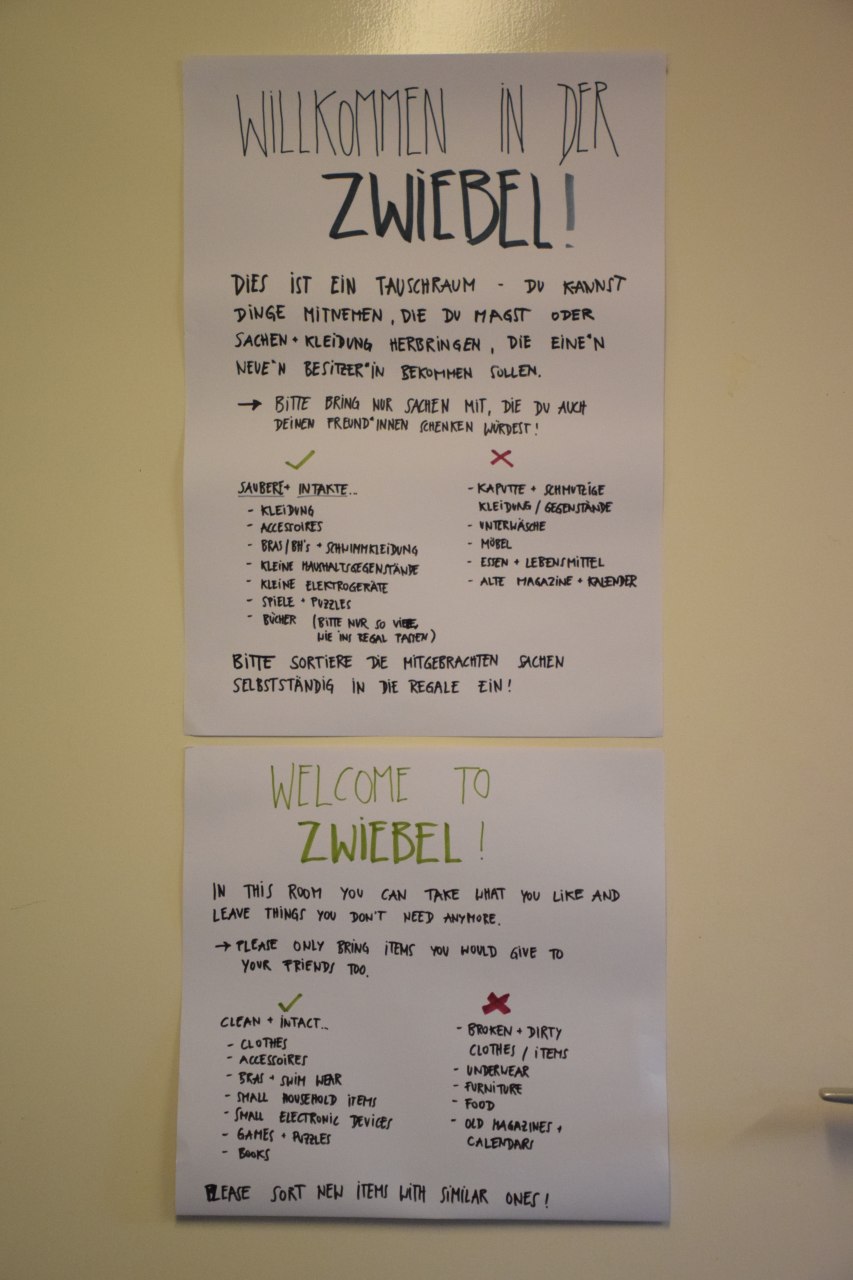 WILLKOMMEN IN DER
ZWIEBEL!
DIES IST EIN TAUSCHRAUM - DU KANNST
DINGE MITNEMEN, DIE DU MAGST ODER
SACHEN + KLEIDUNG HERBRINGEN, DIE EINE*N
NEUE*N BESITZER*IN BEKOMMEN SOLLEN.
→ BITTE BRING NUR SACHEN MIT, DIE DU AUCH
DEINEN FREUND*INNEN SCHENKEN WÜRDEST!
✓
SAUBERE + INTAKTE...
- KLEIDUNG
- ACCESSOIRES
- BRAS/BH's + SCHWIMMKLEIDUNG
- KLEINE HAUSHALTSGEGENSTÄNDE
- KLEINE ELEKTROGERÄTE
- SPIELE + PUZZLES
- BÜCHER (BITTE NUR SO VIELE,
WIE INS REGAL PASSEN)
✗
- KAPUTTE + SCHMUTZIGE
KLEIDUNG / GEGENSTÄNDE
- UNTERWÄSCHE
- MÖBEL
- ESSEN + LEBENSMITTEL
- ALTE MAGAZINE + KALENDER
BITTE SORTIERE DIE MITGEBRACHTEN SACHEN
SELBSTSTÄNDIG IN DIE REGALE EIN!
WELCOME TO
ZWIEBEL!
IN THIS ROOM YOU CAN TAKE WHAT YOU LIKE AND
LEAVE THINGS YOU DON'T NEED ANYMORE.
→ PLEASE ONLY BRING ITEMS YOU WOULD GIVE TO
YOUR FRIENDS TOO.
✓
CLEAN + INTACT...
- CLOTHES
- ACCESSOIRES
- BRAS + SWIM WEAR
- SMALL HOUSEHOLD ITEMS
- SMALL ELECTRONIC DEVICES
- GAMES + PUZZLES
- BOOKS
✗
- BROKEN + DIRTY
CLOTHES / ITEMS
- UNDERWEAR
- FURNITURE
- FOOD
- OLD MAGAZINES +
CALENDARS
PLEASE SORT NEW ITEMS WITH SIMILAR ONES!